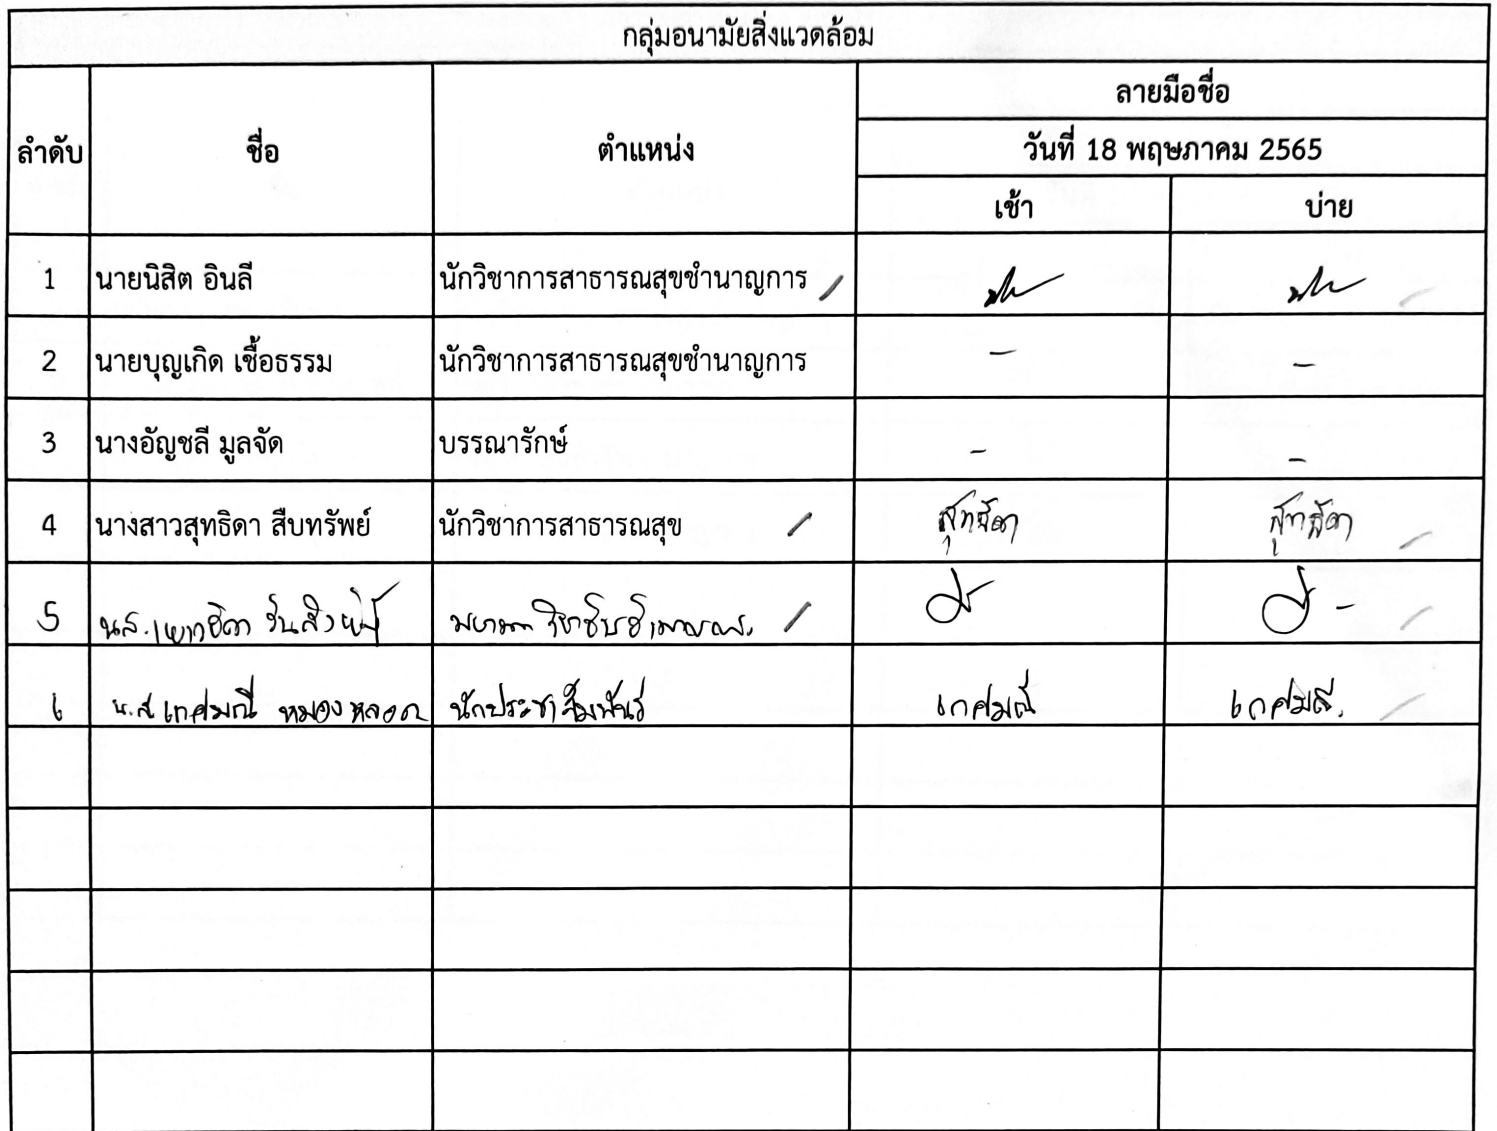 กลุ่มอนามัยสิ่งแวดล้อม
ลำดับ ชื่อ ตำแหน่ง ลายมือชื่อ
วันที่ 18 พฤษภาคม 2565
เช้า บ่าย
1 นายนิสิต อินลี นักวิชาการสาธารณสุขชำนาญการ
2 นายบุญเกิด เชื้อธรรม นักวิชาการสาธารณสุขชำนาญการ - -
3 นางอัญชลี มูลจัด บรรณารักษ์ - -
4 นางสาวสุทธิดา สืบทรัพย์ นักวิชาการสาธารณสุข สุทธิดา สุทธิดา
5 นส.
6 น.ส เกศมณี หมองหลอด นักประชาสัมพันธ์ เกศมณี เกศมณี